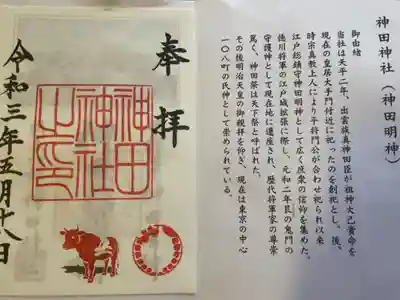 神田神社(神田明神)
御由緒
当社は天平二年、出雲族真神田臣が祖神大己貴命を
現在の皇居大手門付近に祀ったのを創祀とし、後、
時宗真教上人により平将門公が合わせ祀られ以来
江戸総鎮守神田明神として広く庶衆の信仰を集めた。
徳川将軍の江戸城拡張に際し、元和二年艮の鬼門の
守護神として現在地に遷座され、歴代将軍家の尊崇
篤く、神田祭は天下祭と呼ばれた。
その後明治天皇の御親拝を仰ぎ、現在は東京の中心
一〇八町の氏神として崇められている。
奉拝
神田
神社
之印
令和三年五月十八日